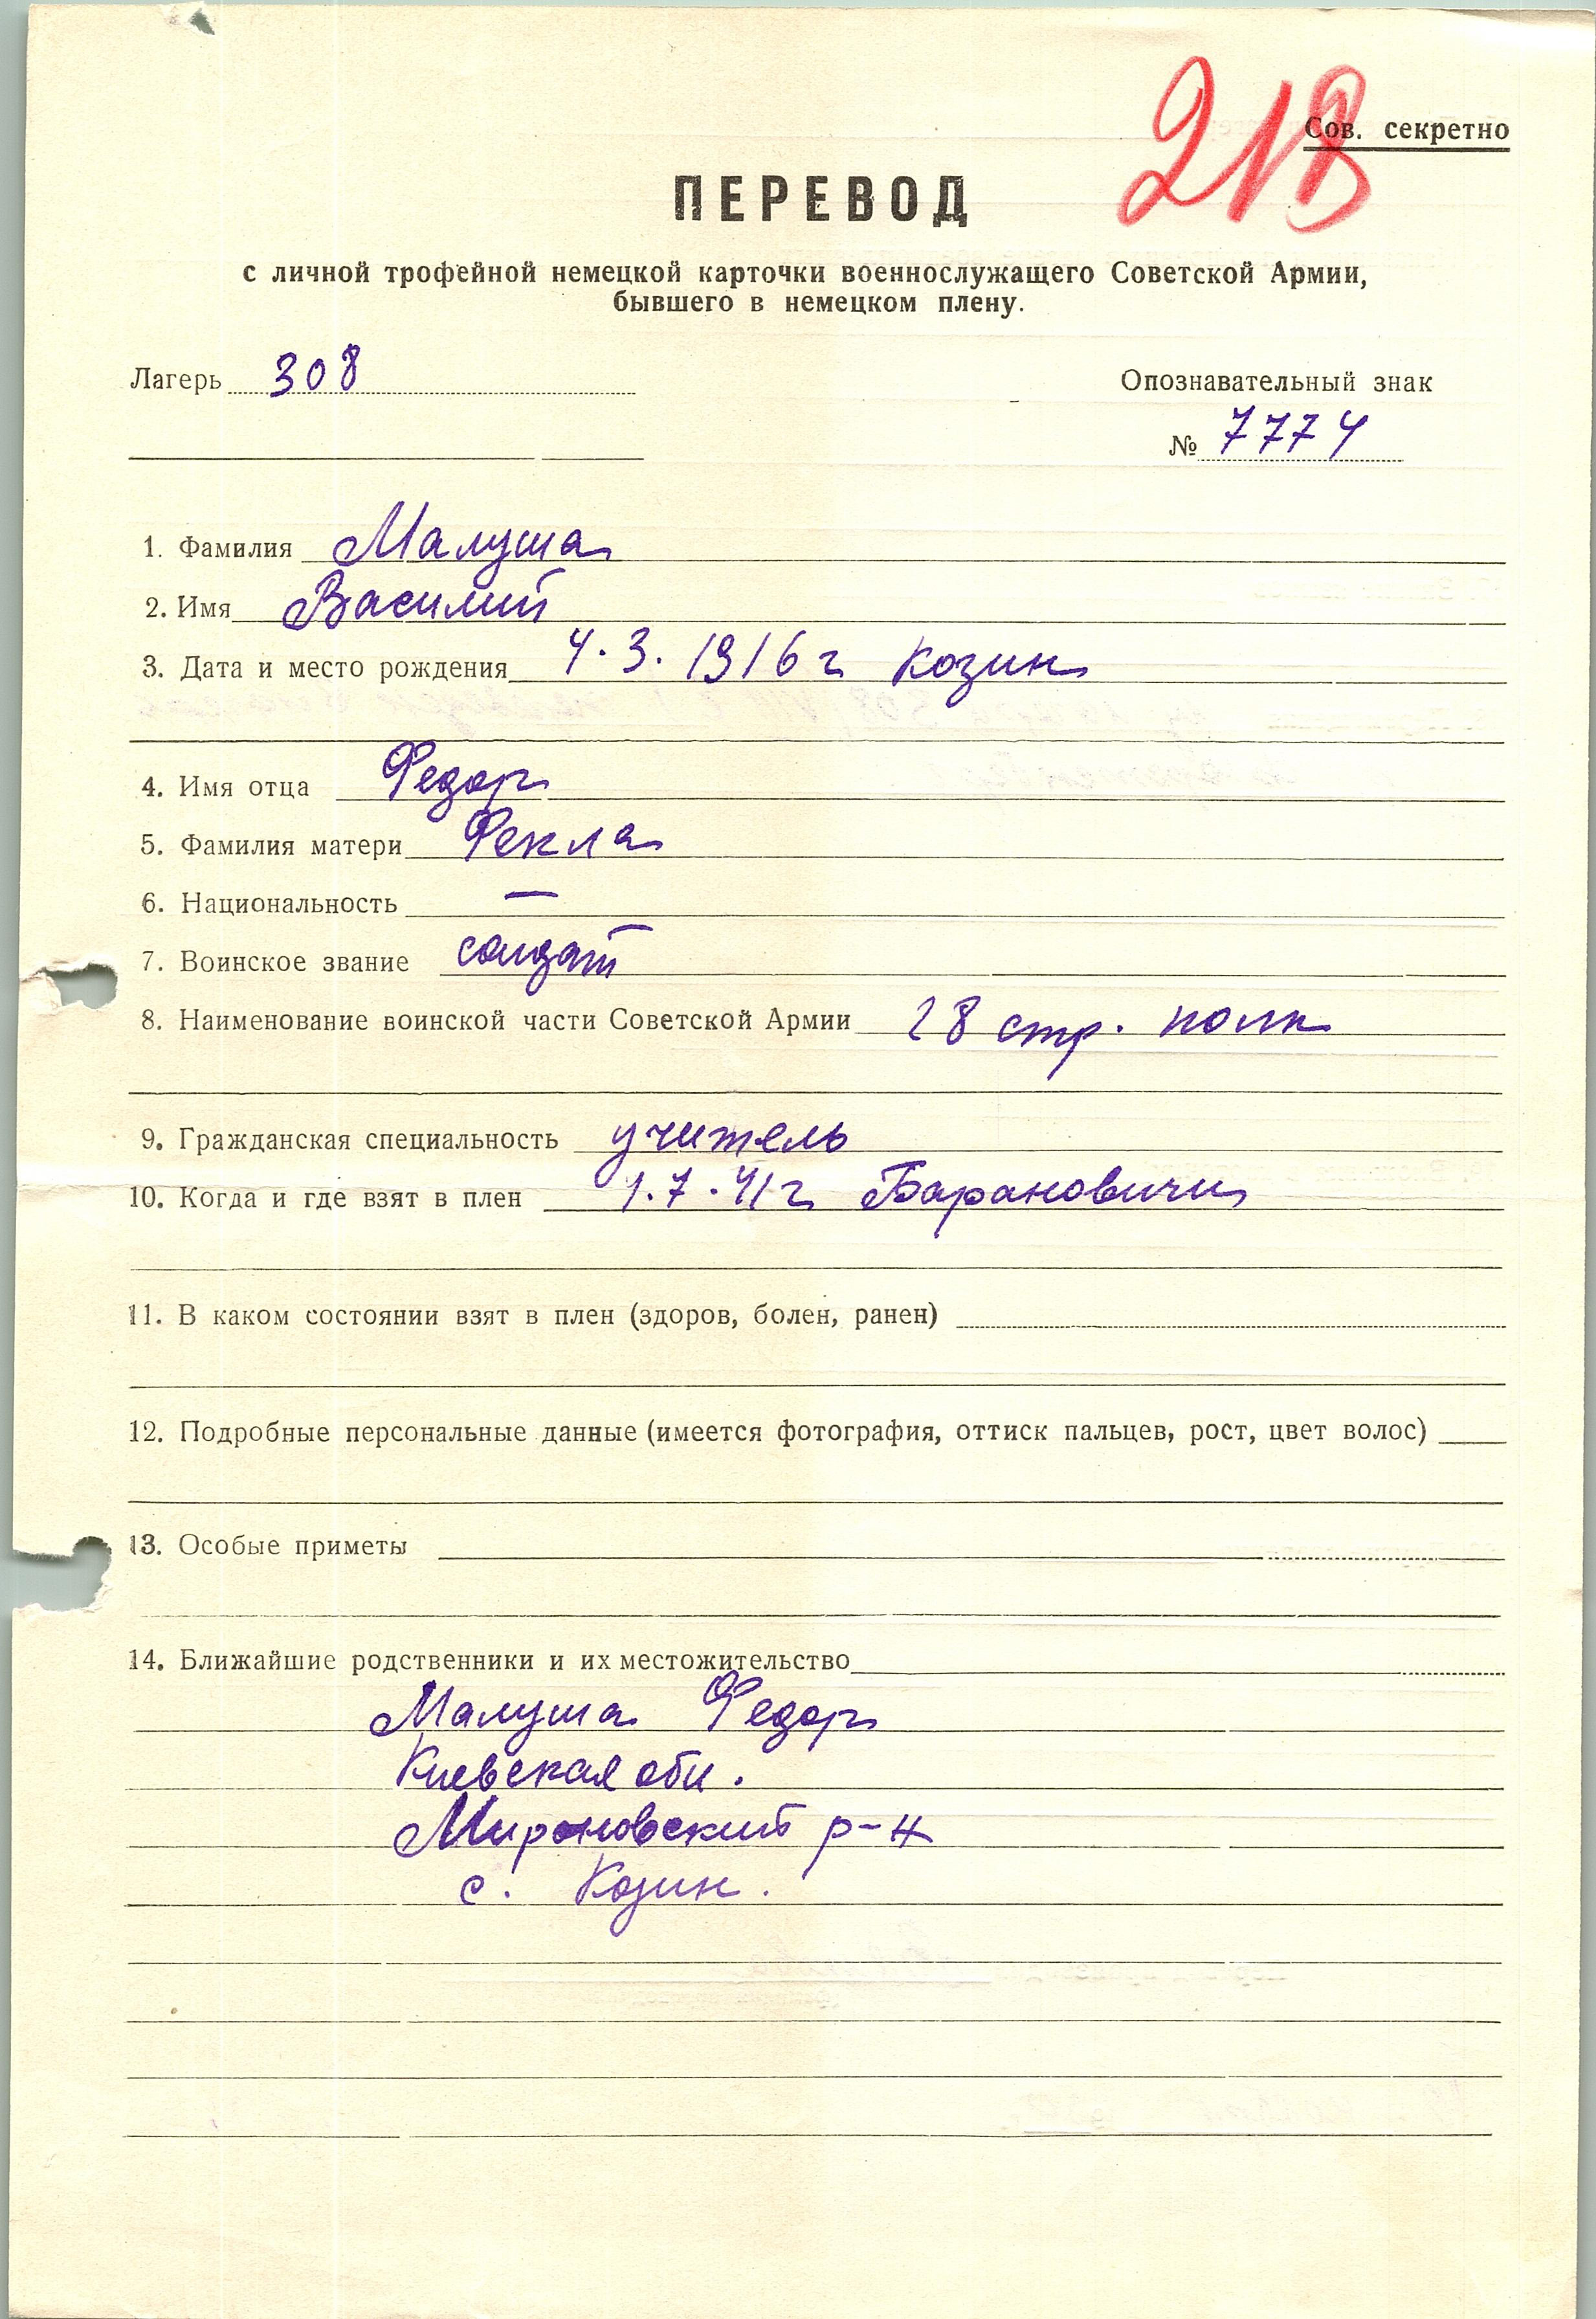 218
Сов. секретно
ПЕРЕВОД
с личной трофейной немецкой карточки военнослужащего Советской Армии,
бывшего в немецком плену.
Лагерь 308
Опознавательный знак
№ 7774
1. Фамилия Малуша
2. Имя Василий
3. Дата и место рождения 4.3.1916 г Козин
4. Имя отца Федор
5. Фамилия матери Фекла
6. Национальность —
7. Воинское звание солдат
8. Наименование воинской части Советской Армии 28 стр. полк
9. Гражданская специальность учитель
10. Когда и где взят в плен 1.7.41 г Барановичи
11. В каком состоянии взят в плен (здоров, болен, ранен)
12. Подробные персональные данные (имеется фотография, оттиск пальцев, рост, цвет волос)
13. Особые приметы
14. Ближайшие родственники и их местожительство
Малуша Федор
Киевская обл.
Мироновский р-н
с. Козин.